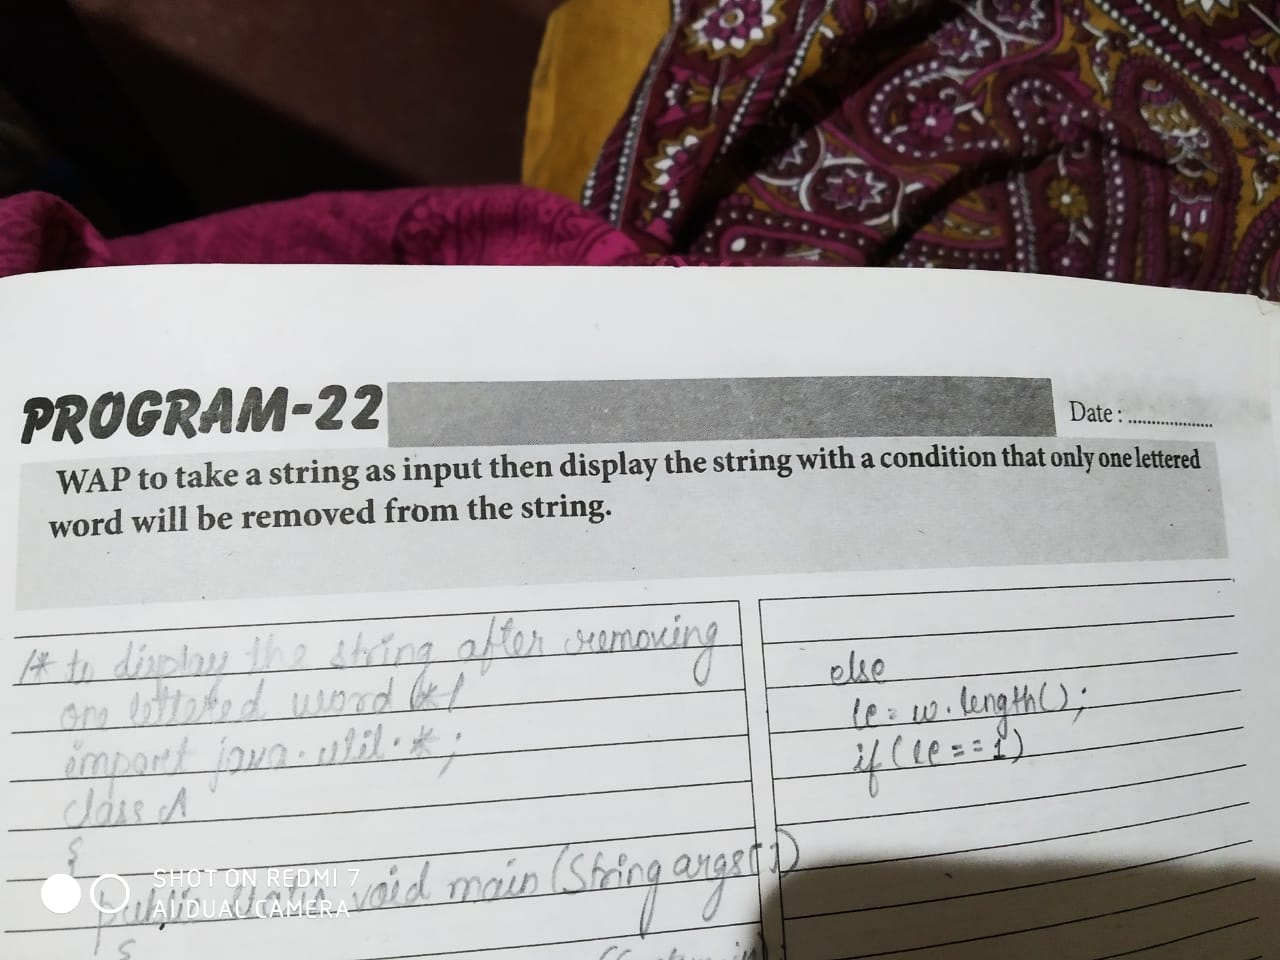 PROGRAM-22
Date : ....................
WAP to take a string as input then display the string with a condition that only one lettered
word will be removed from the string.
/* to display the string after removing
one lettered word */
import java.util.*;
class A
{
public static void main (String args[])
{
else
le = w.length();
if (le == 1)
SHOT ON REDMI 7
AI DUAL CAMERA